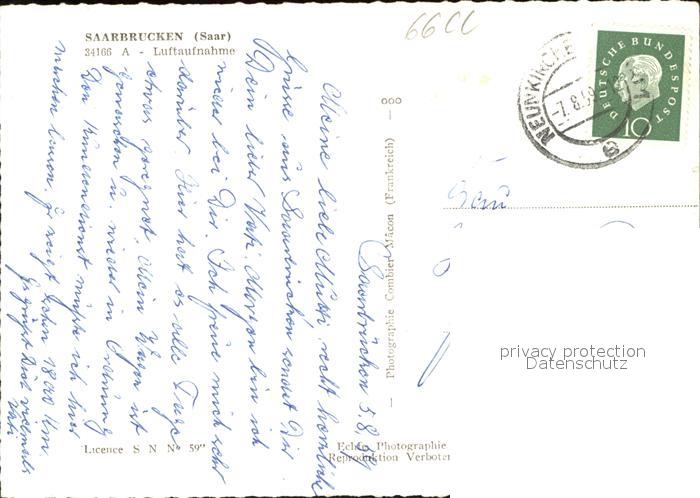 SAARBRUCKEN (Saar)
34166 A - Luftaufnahme
66CC
NEUNKIRCHE
DEUTSCHE BUNDESPOST
10
Frau
Saarbrücken 5.8.59
Meine liebe Mutti, recht herzliche
Grüsse aus Saarbrücken sendet Dir
Dein lieber Vati. Morgen bin ich
wieder bei Dir. Ich freue mich sehr
darüber. Hier hat es alle Tage
etwas geregnet. Mein Wagen ist
gewaschen u. wieder in Ordnung
Den Kundendienst musste ich hier
machen lassen. Er zeigt schon 1800 Km.
Es grüsst Dich vielmals
Vati
ooo
— Photographie Combier Mâcon (Frankreich) —
Licence S N N° 59"
Echte Photographie
Reproduktion Verboten
privacy protection
Datenschutz